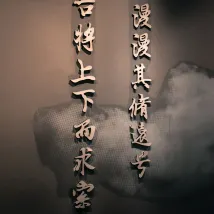 漫漫其脩遠兮
吾将上下而求索